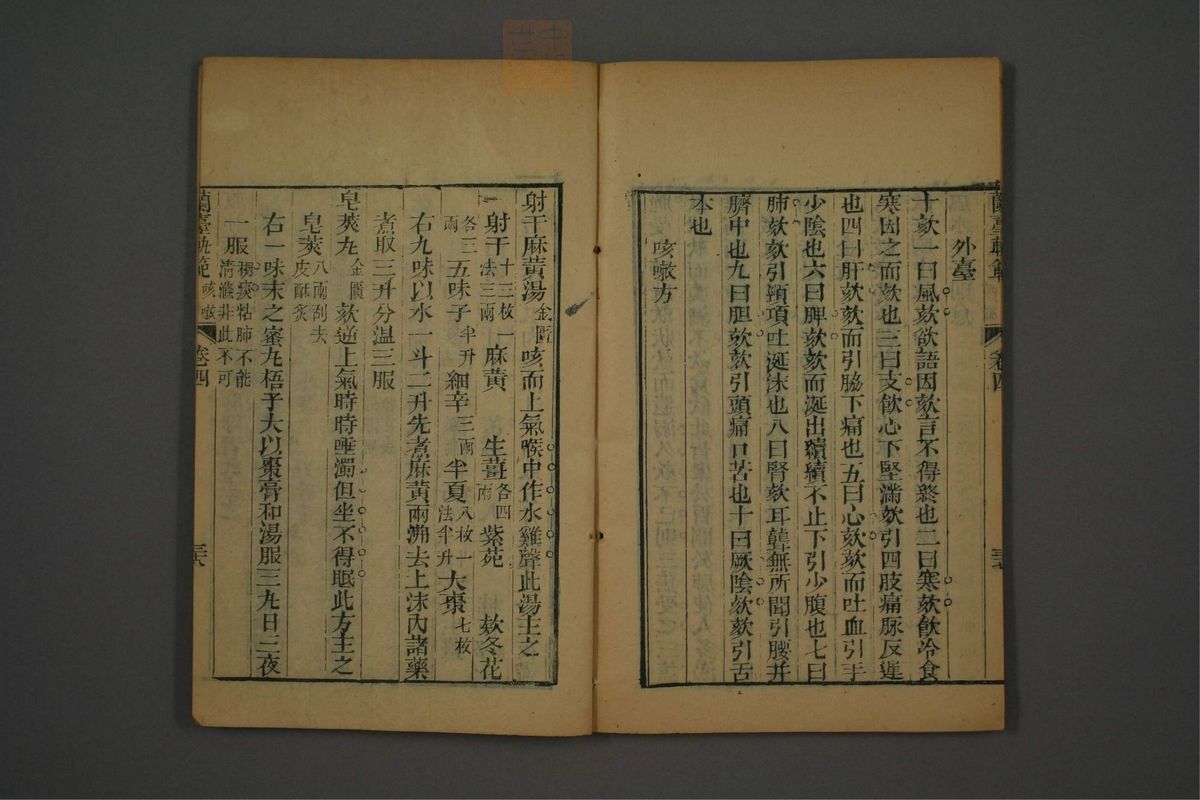 外臺
十欬一曰風欬欲語因欬言不得終也二曰寒欬飲冷食
寒因之而欬也三曰支飲心下堅滿欬引四肢痛脉反遲
也四曰肝欬欬而引脇下痛也五曰心欬欬而吐血引手
少陰也六曰脾欬欬而涎出續續不止下引少腹也七曰
肺欬欬引頸項吐涎沫也八曰腎欬耳聾無所聞引腰并
臍中也九曰胆欬欬引頭痛口苦也十曰厥陰欬欬引舌
本也
咳嗽方
射干麻黃湯金匱咳而上氣喉中作水雞聲此湯主之
射干十三枚一法三兩 麻黃 生薑各四兩 紫菀 欬冬花
各三兩 五味子半升 細辛三兩 半夏八枚一法半升 大棗七枚
右九味以水一斗二升先煮麻黃兩沸去上沫內諸藥
煮取三升分温三服
皂莢丸金匱欬逆上氣時時唾濁但坐不得眠此方主之
皂莢八兩刮去皮酥炙
右一味末之蜜丸梧子大以棗膏和湯服三丸日三夜
一服稠痰粘肺不能清滌非此不可
蘭臺軌範 咳嗽 卷四